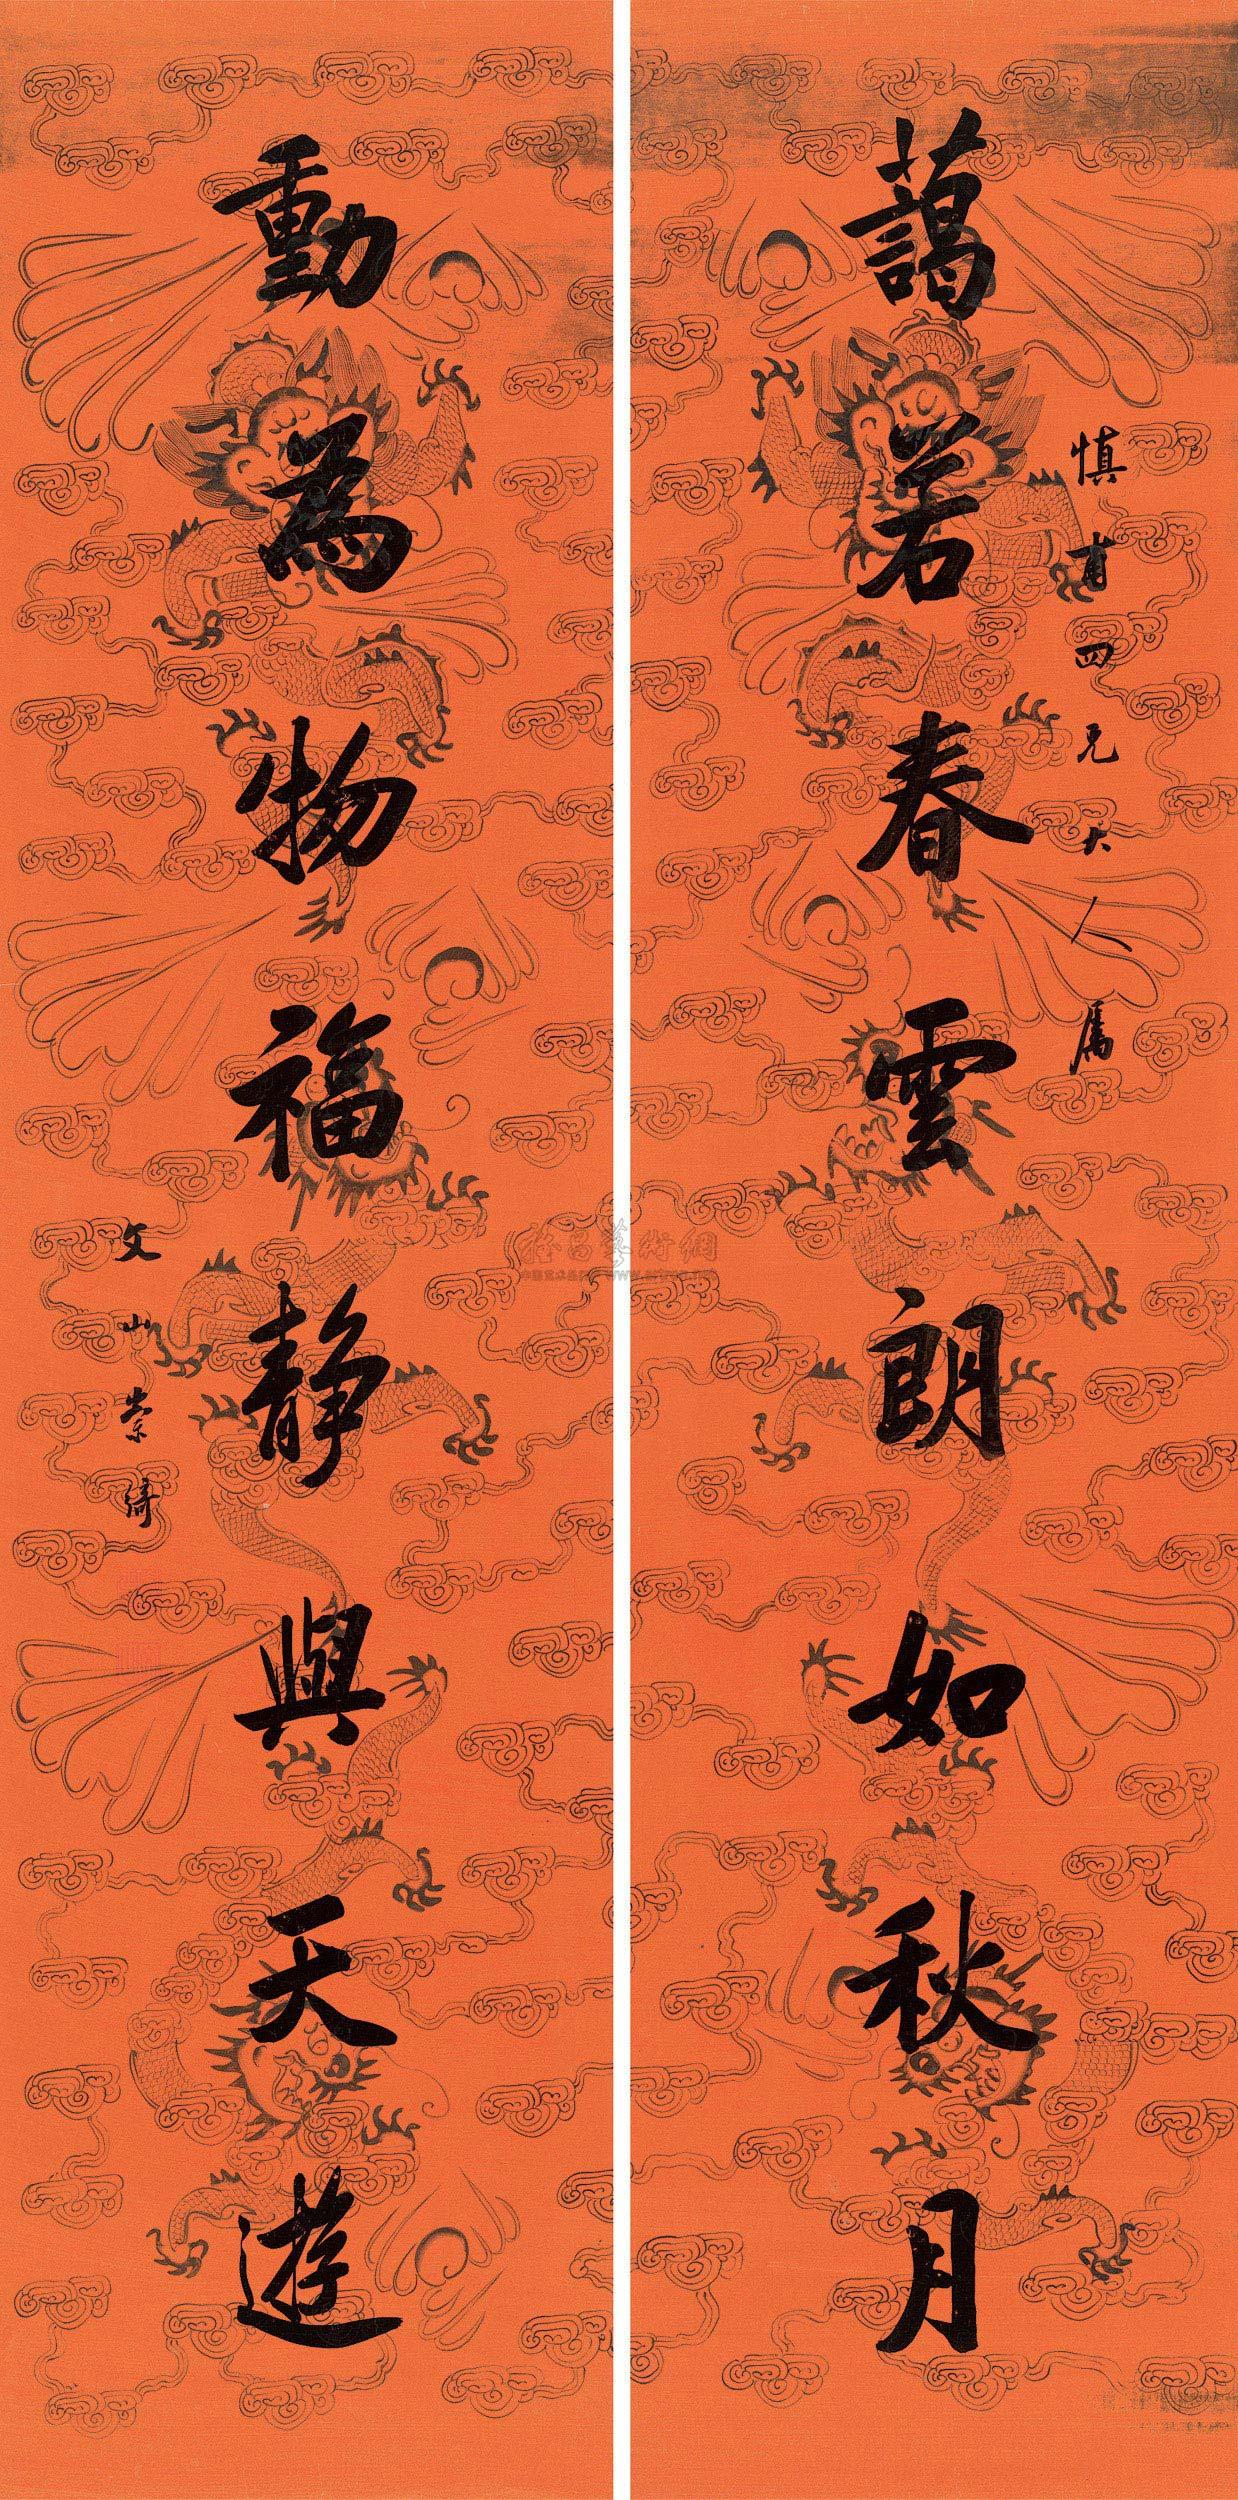 慎甫四兄大人屬
藹若春雲朗如秋月
動為物福靜與天遊
文山崇綺